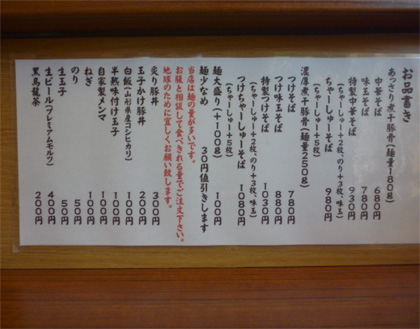 お品書き
あっさり煮干豚骨(麺量180g)
中華そば 680円
味玉そば 780円
特製中華そば 930円
(ちゃーしゅー+2枚、のり+3枚、味玉)
ちゃーしゅーそば 980円
(ちゃーしゅー+5枚)
濃厚煮干豚骨(麺量250g)
つけそば 780円
つけ味玉そば 880円
特製つけそば 1030円
(ちゃーしゅー+2枚、のり+3枚、味玉)
つけちゃーしゅーそば 1080円
(ちゃーしゅー+5枚)
麺大盛り(+100g) 100円
麺少なめ 30円値引きします
当店は麺の量が多いです。
お腹と相談して食べきれる量でご注文下さい。
地球のために宜しくお願い致します。
炙り豚丼 300円
玉子かけ豚丼 200円
白飯(山形県産コシヒカリ) 100円
半熟味付け玉子 100円
自家製メンマ 100円
ねぎ 100円
のり 50円
生玉子 50円
生ビール(プレミアムモルツ) 400円
黒烏龍茶 200円